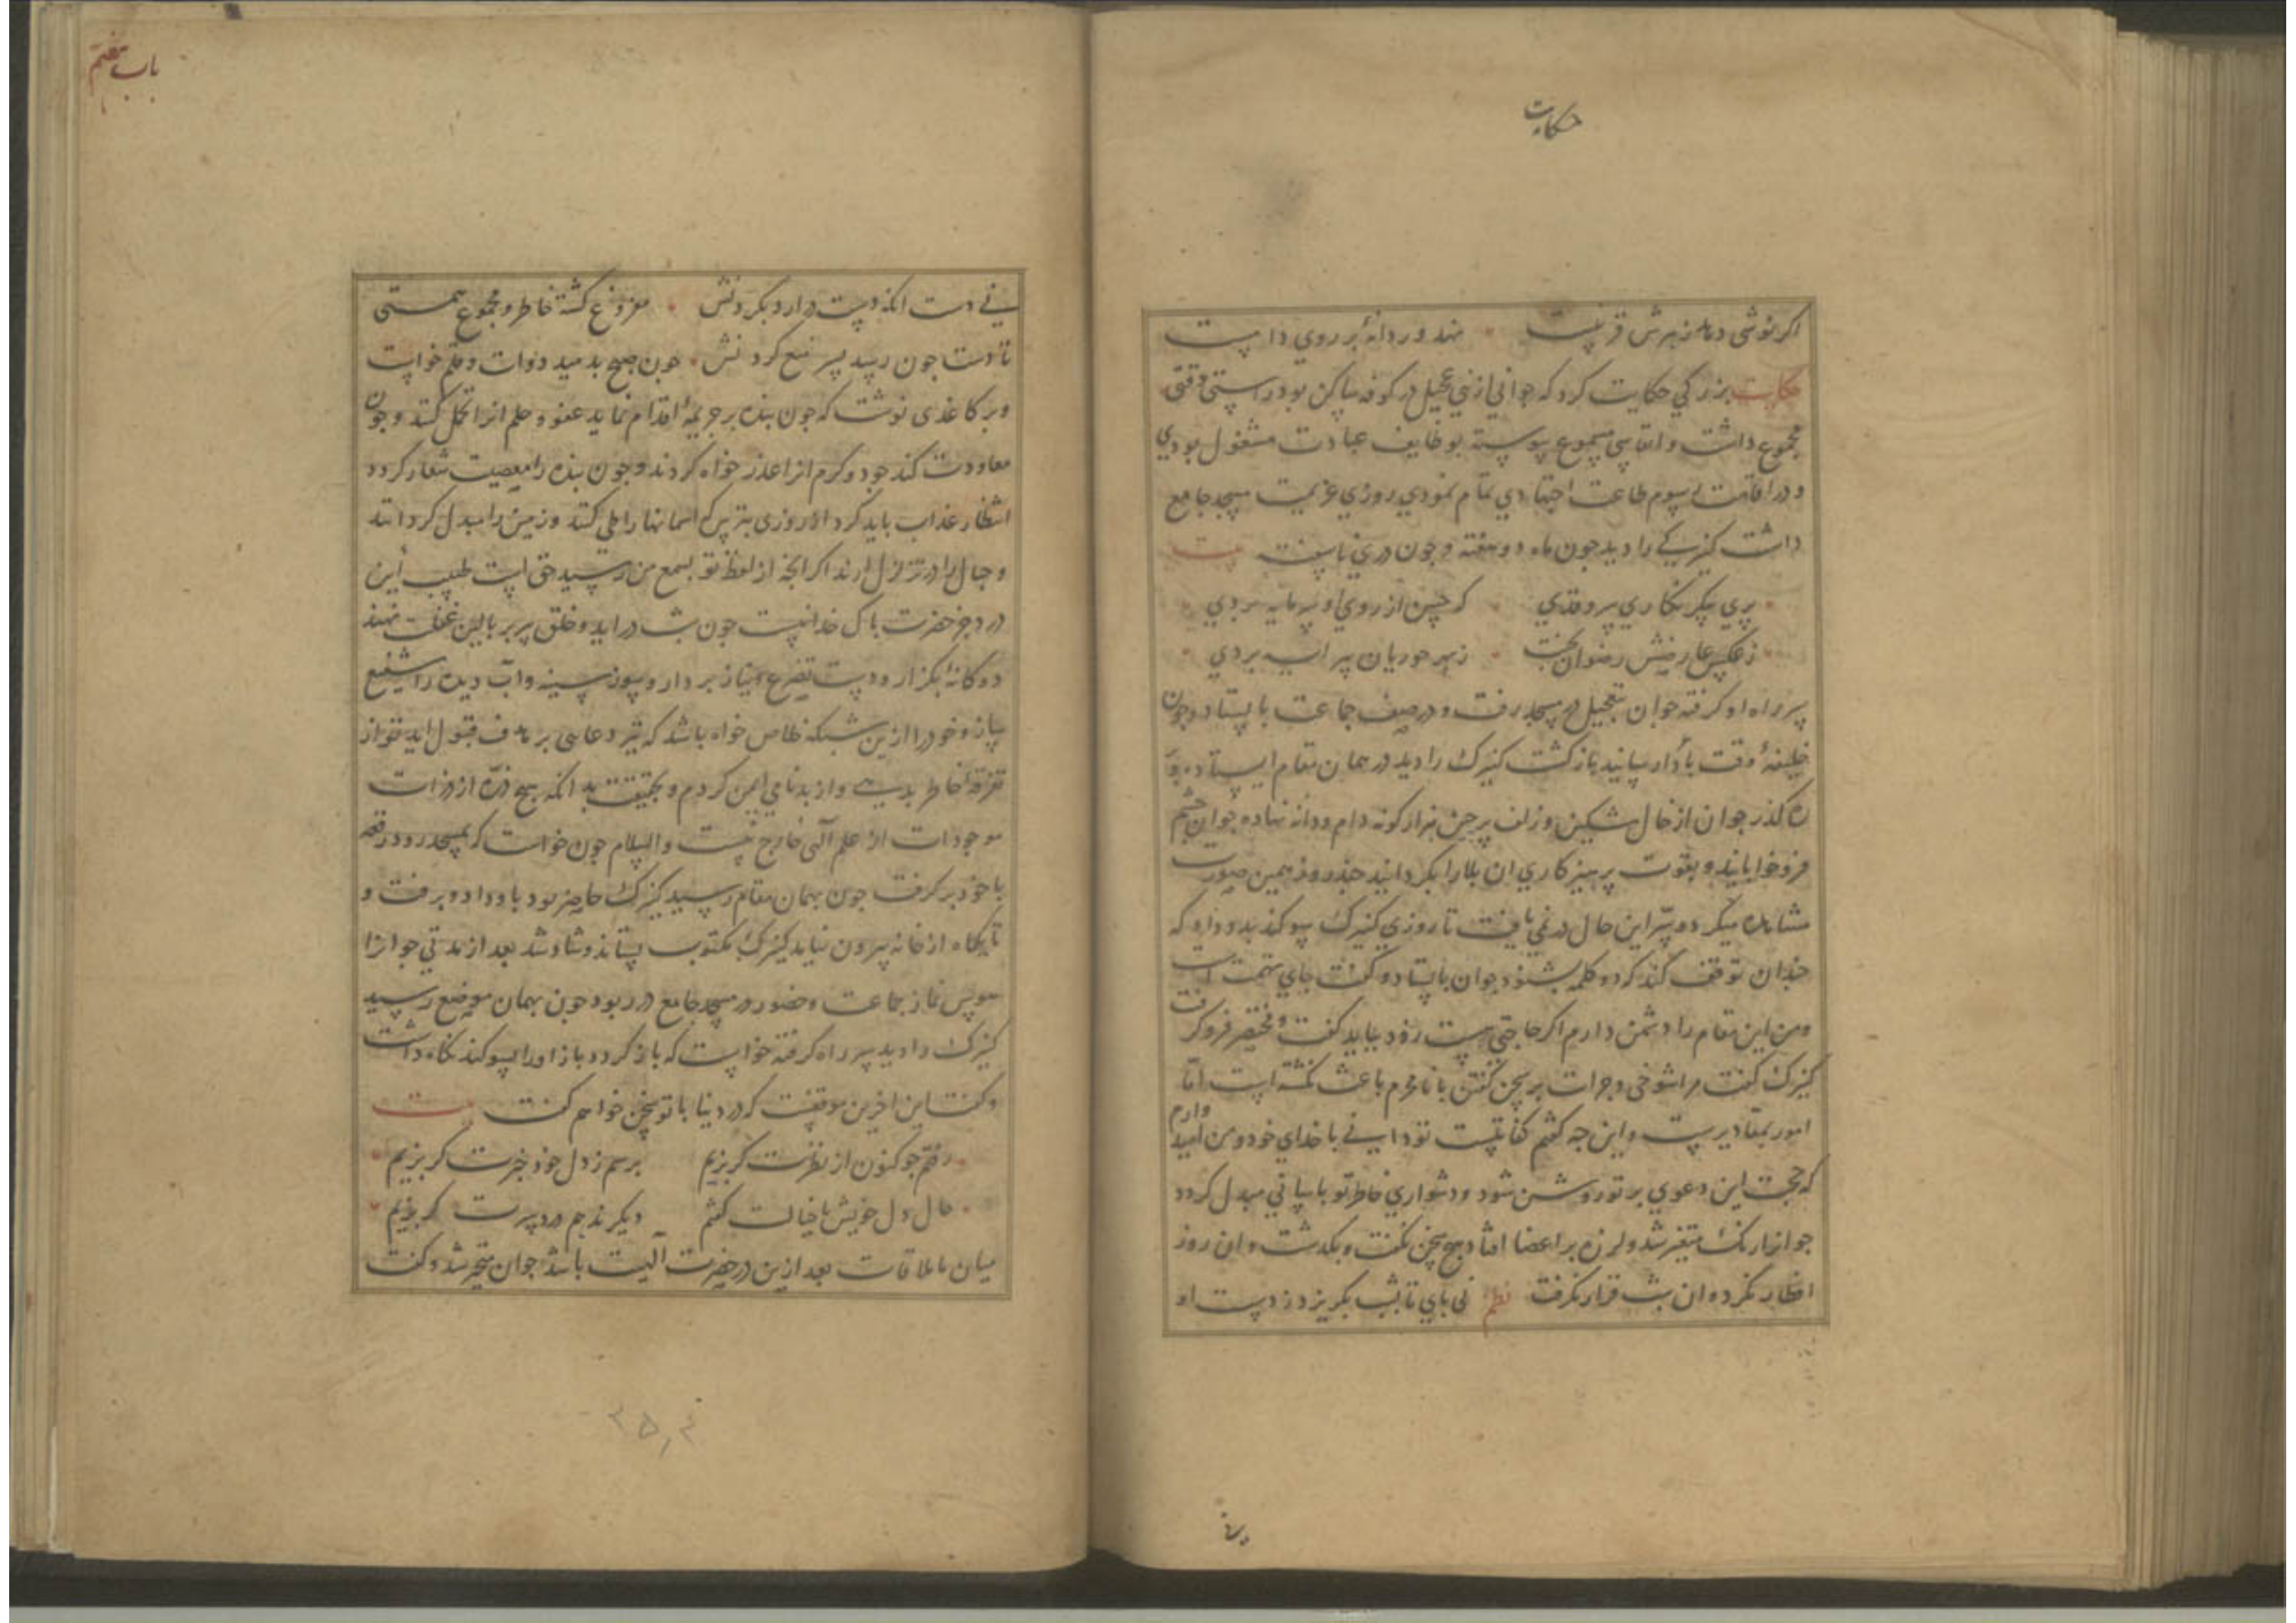 حکایت
اگر نوشی دهد زهرش قرینست نهد و ر دانهٔ بر روی دامست
حکایت بزرگی حکایت کرد که جوانی از بنی عجیل در کوفه ساکن بود راستی وقتی
مجموع داشت و انفاسی مسموع پیوسته بوظایف عبادت مشغول بودی
و در اقامت رسوم طاعت اجتهادی تمام نمودی روزی عزیمت مسجد جامع
داشت کنیزکی را دید چون ماه دو هفته و چون دری ناسفته بیت
پری پیکر نگاری سروقدی که حسن از روی او سرمایه بردی
ز عکس عارضش رضوان بجنت ز بهر حوریان پیرایه بردی
سر راه او گرفته جوان بتعجیل در مسجد رفت و در صف جماعت بایستاد و چون
وظیفهٔ وقت بادا رسانید بازگشت کنیزک را دید در همان مقام ایستاده بر
ره گذر جوان از خال مشکین و زلف پرچین هزار گونه دام و دانه نهاده جوان چشم
فرو خوابانید و بقوت پرهیزکاری ان بلا را بگردانید چند روز همین صورت
مشاهده میکرد و سر این حال در نمی یافت تا روزی کنیزک سوگند بدو داد که
چندان توقف کند که دو کلمه بشنود جوان بایستاد و گفت جای تهمت است
و من این مقام را دشمن دارم اگر حاجتی هست زود بباید گفت و مختصر فرو گرفت
کنیزک گفت مرا شوخی و جرات بر سخن گفتن با نامحرم باعث نگشته است اما
امور بمقادیرست و این چه گفتم کفایتست تو دانی با خدای خود و من امید دارم
که حجت این دعوی بر تو روشن شود و دشواری خاطر تو باسانی مبدل گردد
جوانرا رنگ متغیر شد و لرزه بر اعضا افتاد هیچ سخن نگفت و بگذشت و ان روز
افطار نکرد و ان شب قرار نگرفت نظم نی پای تا بشب بگریزد ز دست او
باب هفتم
نی دست انکه دست درارد بگردنش مفروغ گشته خاطر و مجموع همتی
تا دست چون رسید پس منع کردنش چون صبح بدمید دوات و قلم خواست
و بر کاغذی نوشت که چون بنده بر جریمهٔ اقدام نماید عفو و حلم انرا تحمل کند و چون
معاودت کند جود و کرم انرا عذر خواه گردند و چون بنده را معصیت شعار گردد
انتظار عذاب باید کرد از روزی بترس که اسمانها را طی کنند و زمین را مبدل گردانند
و جبال را در تزلزل ارند اگر انچه از لفظ تو بسمع من رسید حق است طبیب این
درد جز حضرت پاک خدا نیست چون شب در اید و خلق سر بر بالین غفلت نهند
دو گانهٔ بگزار و دست تضرع و نیاز بردار و سوز سینه و اب دیده را شفیع
ساز و خود را ازین شبکه خلاص خواه باشد که تیر دعایی بر هدف قبول اید تو از
تفرقهٔ خاطر برهی و از بدنامی ایمن گردم و بحقیقت بدانکه هیچ ذره از ذرات
موجودات از علم الهی خارج نیست والسلام چون خواست که بمسجد رود رقعه
با خود بر گرفت چون بهمان مقام رسید کنیزک حاضر بود باو داد و برفت و
تا یکماه از خانه بیرون نیامد کنیزک مکتوب بستاند و شاد شد بعد از مدتی جوانرا
هوس نماز جماعت و حضور در مسجد جامع در ربود چون بهمان موضع رسید
کنیزک را دید سر راه گرفته خواست که باز گردد باز او را بسوگند نگاه داشت
و گفت این اخرین موقفست که در دنیا با تو سخن خواهم گفت بیت
رفتم چو کنون از نظرت گریزم برسم ز دل خود خبرت گریزم
حال دل خویش با خیالت گفتم دیگر ندهم درد سرت گریزم
میان ما ملاقات بعد ازین در حضرت الهیت باشد جوان متحیر شد و گفت